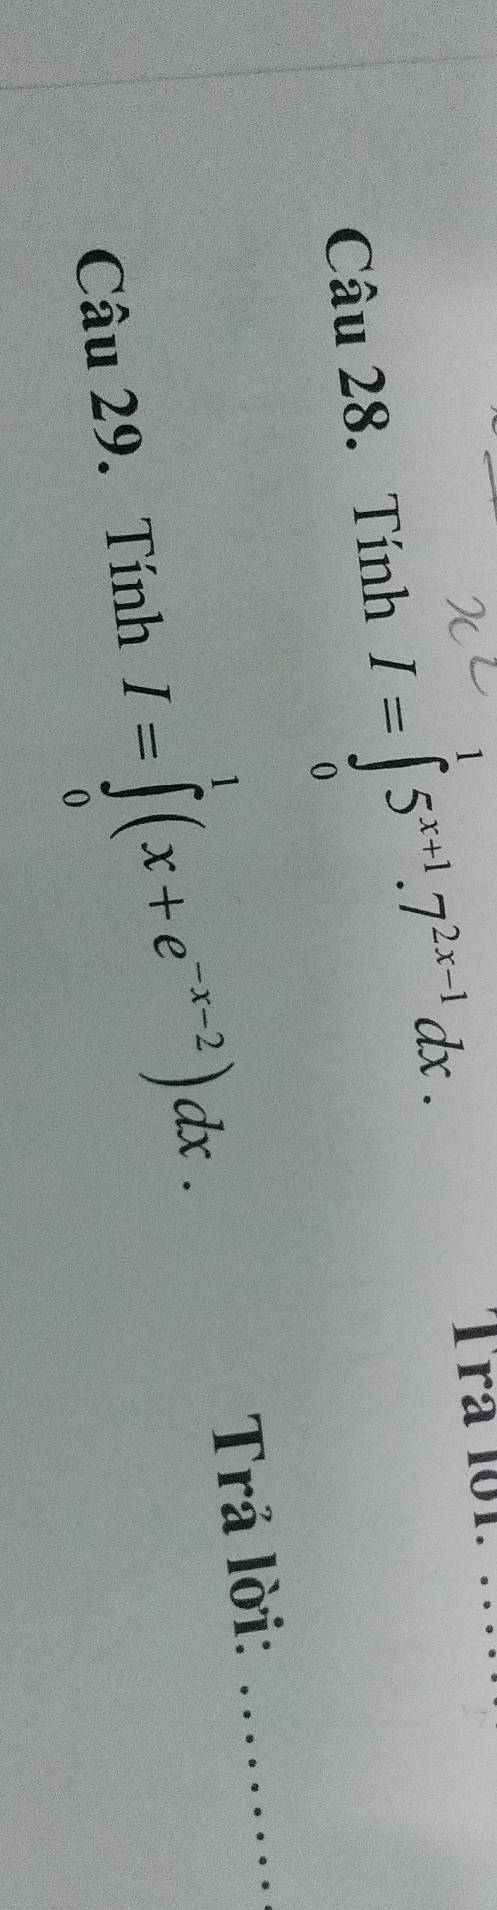 x²
Trả lời: ......
Câu 28. Tính $I=\int_{0}^{1} 5^{x+1}.7^{2x-1}dx$.
Trả lời: ..........
Câu 29. Tính $I=\int_{0}^{1}\left(x+e^{-x-2}\right)dx$.